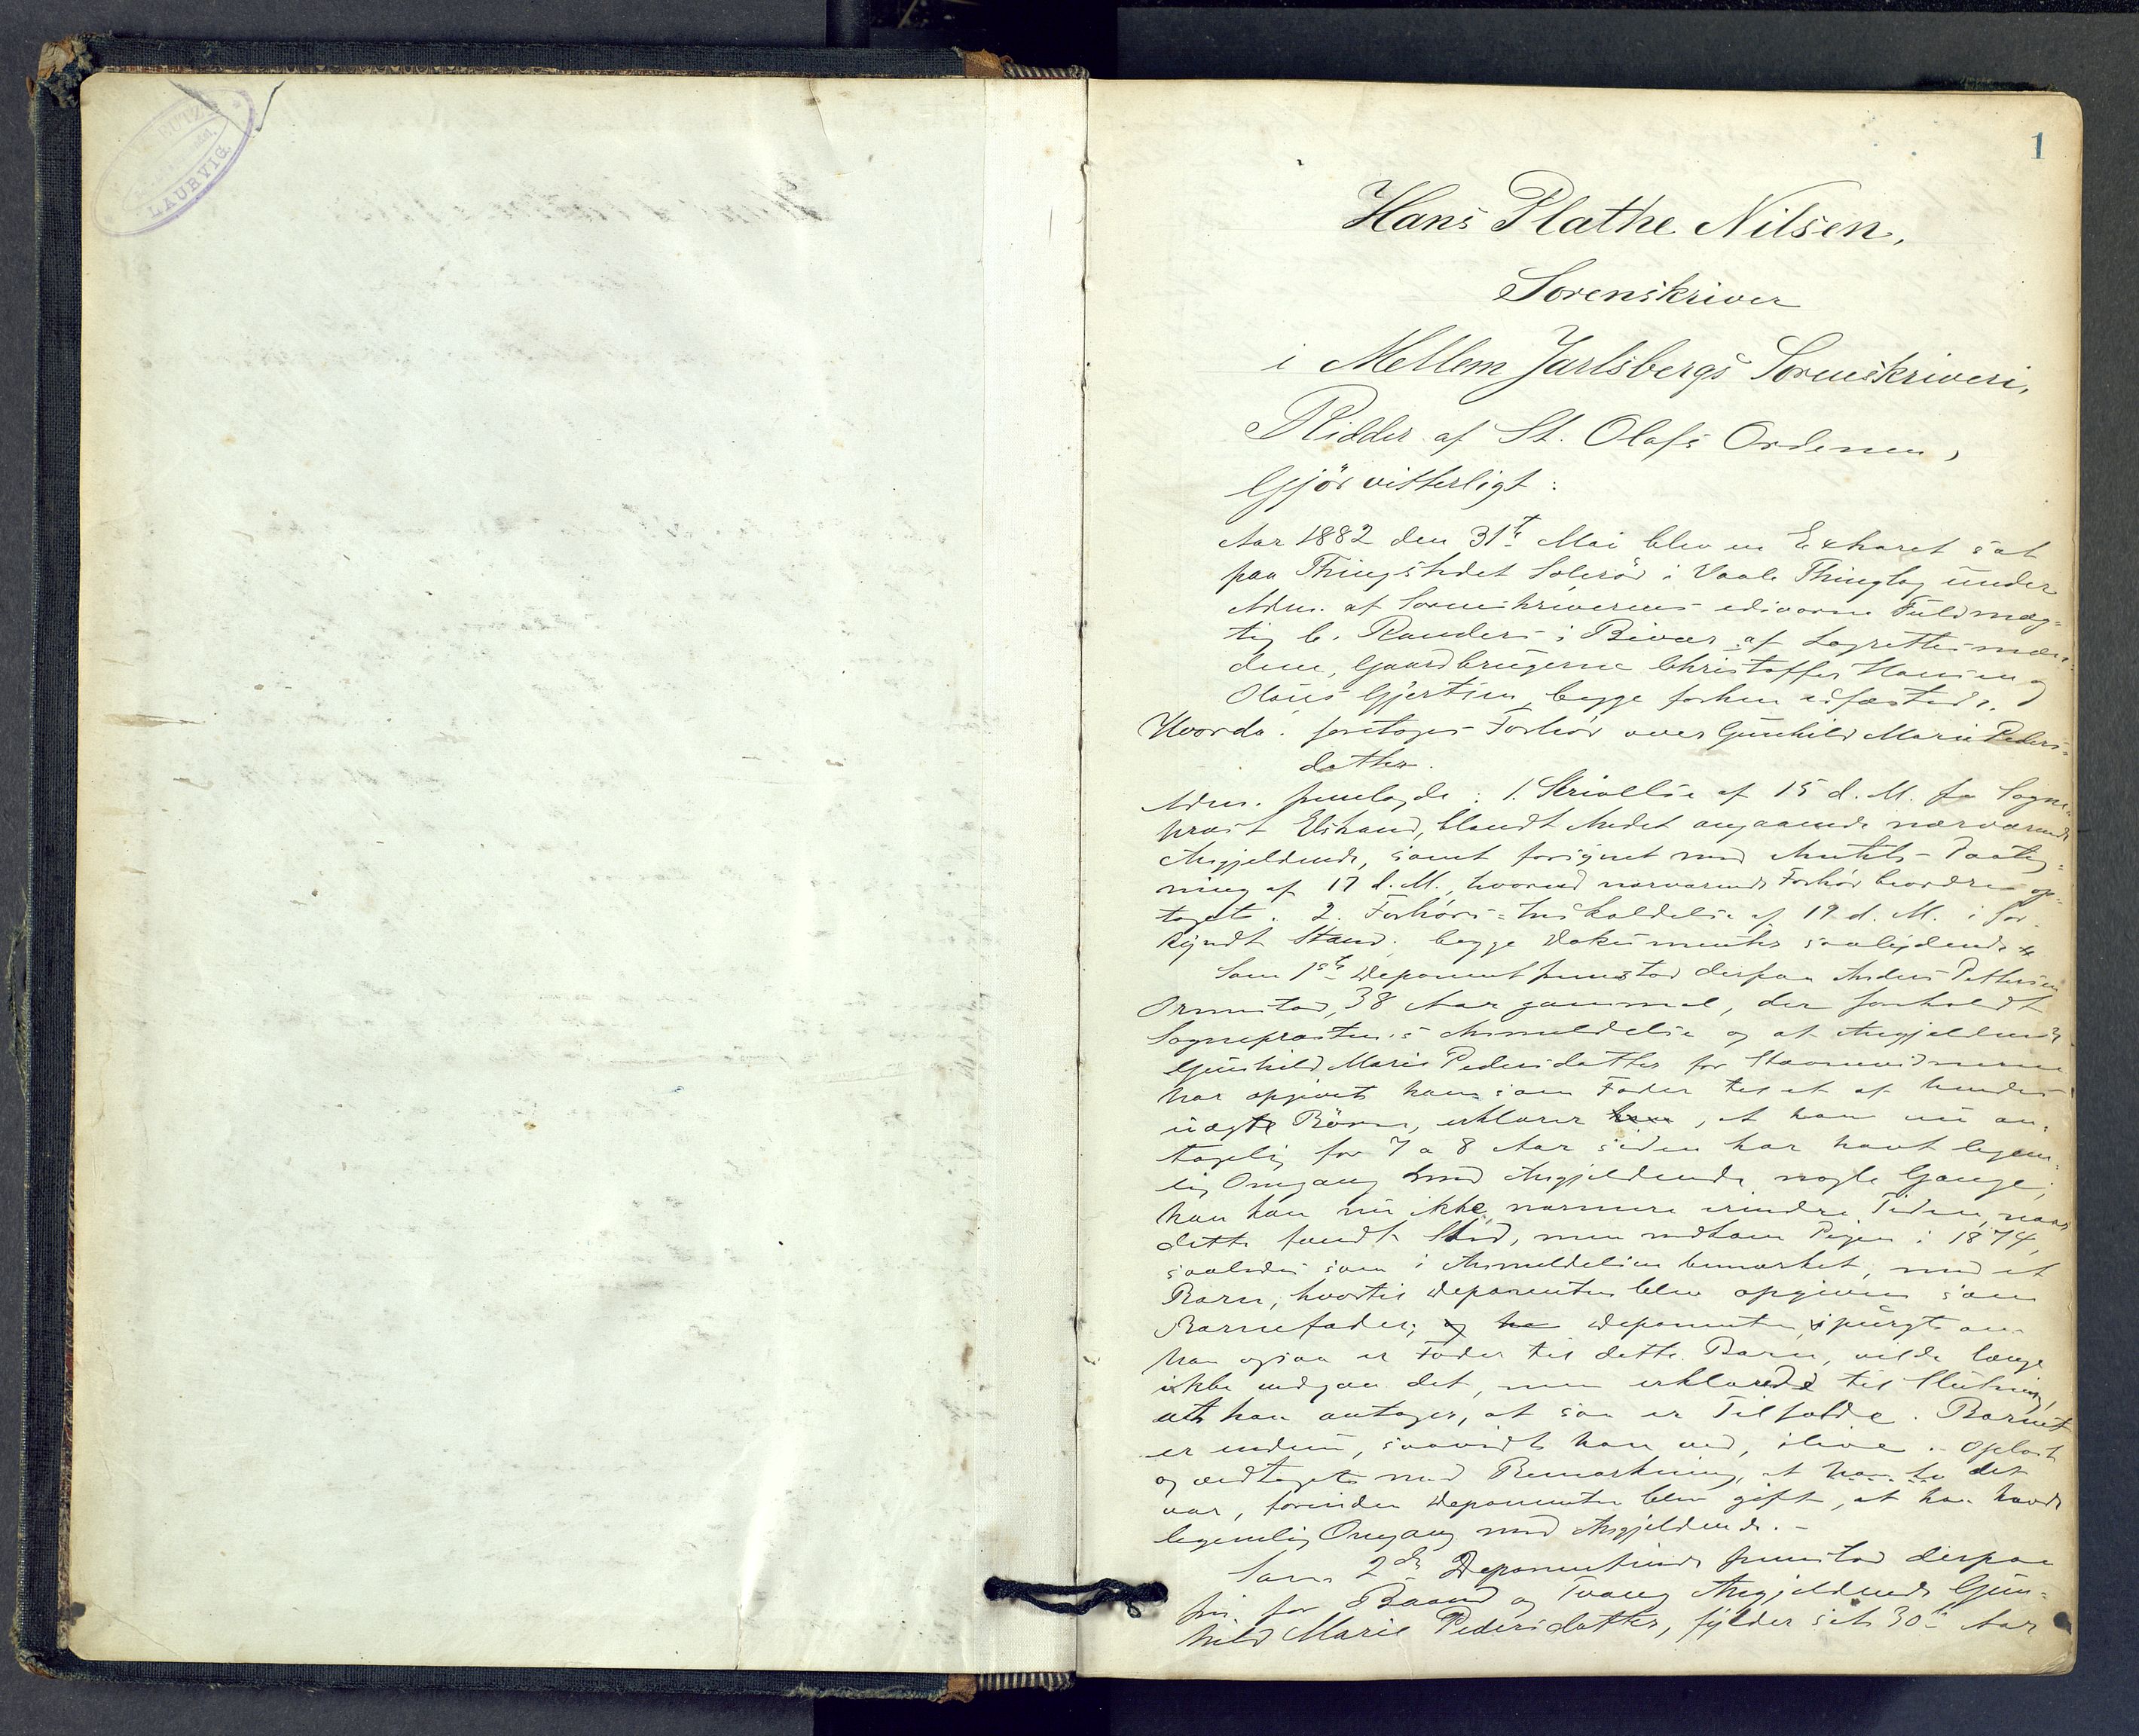 LAURVIG.
1
Hans Plathe Nilsen,
Sorenskriver
i Mellem Jarlsbergs Sorenskriveri,
Ridder af St. Olafs Ordenen,
Gjör vitterligt:
Aar 1882 den 31te Mai blev en Extraret sat
paa Thingstedet Solerød i Vaale Thinglag under
Adm. af Sorenskriverens edsvorne Fuldmæg=
tig C. Randers i Bivær af Lagrettesmæn=
dene, Gaardbrugerne Christoffer Hansen og
Olaus Gjertsen, begge forhen edfæstede.
Hvorda: foretoges Forhør over Gunhild Marie Peders=
datter.
Adm. fremlagde: 1. Skrivelse af 15 d. M. fra Sogne=
prest Elstrand, blandt Andet angaaende nærværende
Angjeldende, samt forsynet med Amtets Paateg=
ning af 17 d. M., hvorved nærværende Forhør beordres op=
taget. 2. Forhørs=Indkaldelse af 19 d. M. i for=
kyndt Stand. begge Dokumenter saalydende
Som 1ste Deponent fremstod derpaa Anders Pettersen
Ormestad, 38 Aar gammel, der foreholdt
Sogneprestens Anmeldelse og at Angjeldende
Gunhild Marie Pedersdatter for Stævnevidnerne
har opgivet ham som Fader til et af hendes
uægte Børn, erklærer han, at han nu an=
tagelig for 7 a 8 Aar siden har havt legem=
lig Omgang med Angjeldende nogle Gange;
han kan nu ikke nærmere erindre Tiden, naar
dette fandt Sted, men nedkom Pigen i 1874,
saaledes som i Anmeldelsen bemærket, med et
Barn, hvortil Deponenten blev opgiven som
Barnefader; og han Deponenten, spurgt om
han ogsaa er Fader til dette Barn, vilde længe
ikke vedgaa det, men erklærede til Slutning,
at han antager, at saa er Tilfælde. Barnet
er endnu, saavidt han ved, ilive. Oplæst
og vedtaget med Bemærkning, at det
var, forinden Deponenten blev gift, at han havde
legemlig Omgang med Angjeldende.-
Som 2den Deponentinde fremstod derpaa
fri for Baand og Tvang Angjeldende Gun=
hild Marie Pedersdatter, fylder sit 30te Aar